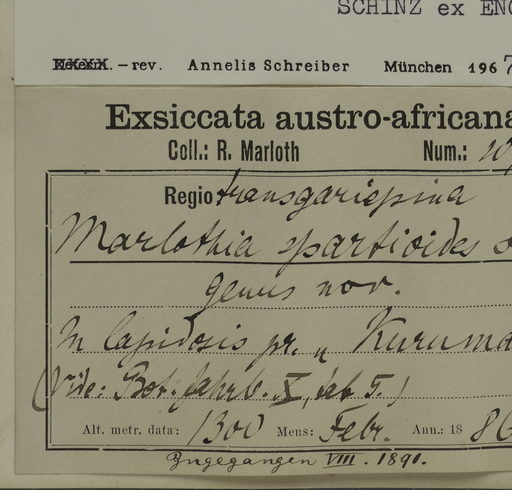 SCHINZ ex ENG
Determ. – rev. Annelis Schreiber München 1967
Exsiccata austro-africana
Coll.: R. Marloth Num.:
Regio: transgariepina
Marlothia spartioides
genus nov.
In lapidosis pr. Kuruma
(Vide: Bot. Jahrb. X, tab 5.)
Alt. metr. data: 1300 Mens: Febr. Ann.: 18 86
Zugegangen VIII. 1891.